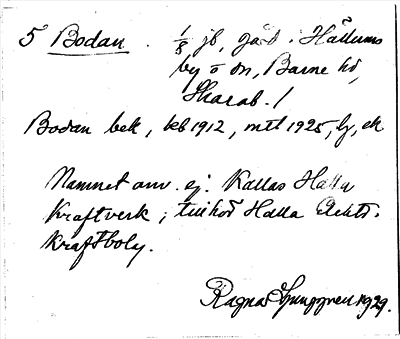 5 Bodan. 1/8 jb, gård i Hällums
by o sn, Barne hd,
Skarab. l
Bodan bek, keb 1912, mtl 1925, ly, ek
Namnet anv. ej. Kallas Halla
Kraftverk; tillhör Halla Elektr.
kraftbolg.
Ragnar Ljunggren 1929.